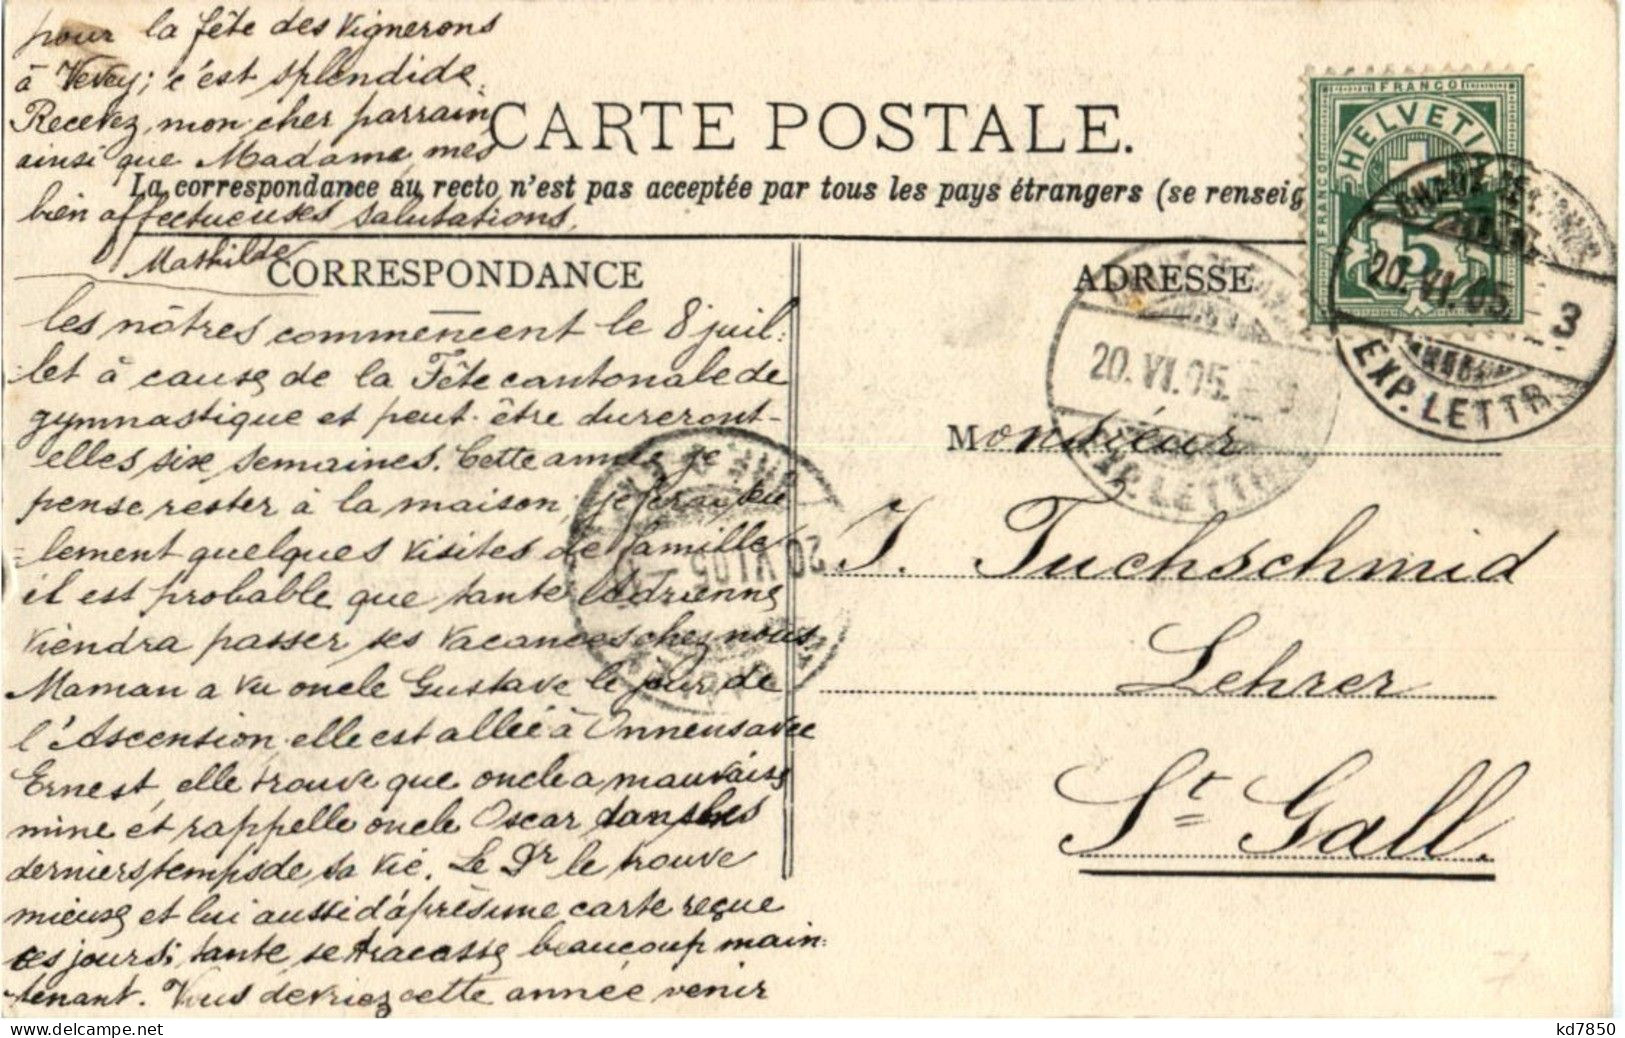 pour la fête des Vignerons
à Vevey; c'est splendide.
Recevez, mon cher parrain
ainsi que Madame, mes
bien affectueuses salutations.
Mathilde
CARTE POSTALE.
La correspondance au recto n'est pas acceptée par tous les pays étrangers (se renseig
CORRESPONDANCE
les nôtres commencent le 8 juil-
let à cause de la Fête cantonale de
gymnastique et peut-être dureront-
elles six semaines. Cette année je
pense rester à la maison; je ferai seu
lement quelques visites de famille
il est probable que tante Adrienne
viendra passer ses vacances chez nous
Maman a vu oncle Gustave le jour de
l'Ascension, elle est allée à Onnens avec
Ernest, elle trouve que oncle a mauvaise
mine et rappelle oncle Oscar dans les
derniers temps de sa vie. Le Dr le trouve
mieux et lui aussi d'après une carte reçue
ces jours; tante se tracasse beaucoup main-
tenant. Vous devriez cette année venir
ADRESSE
Monsieur
J. Tuchschmid
Lehrer
St Gall.
FRANCO
HELVETIA
FRANCO
5
20.VI.05
3
EXP. LETTR
20.VI.05
EXP. LETTR
20 VI 05
kd7850